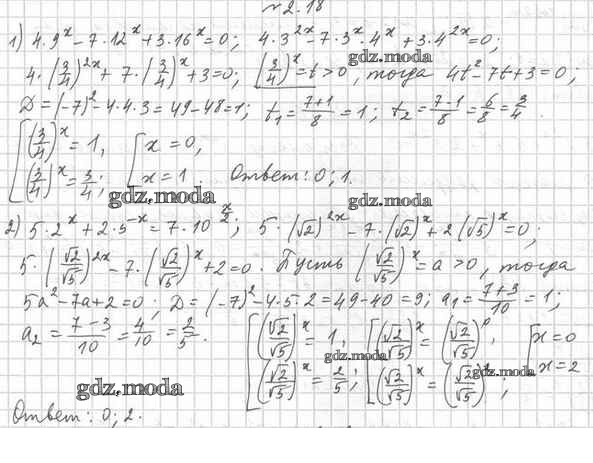 № 2.18
1) 4·9^x − 7·12^x + 3·16^x = 0; 4·3^{2x} − 7·3^x·4^x + 3·4^{2x} = 0;
gdz.moda
4·(3/4)^{2x} + 7·(3/4)^x + 3 = 0; (3/4)^x = t > 0, тогда 4t² − 7t + 3 = 0;
D = (−7)² − 4·4·3 = 49 − 48 = 1; t₁ = (7+1)/8 = 1; t₂ = (7−1)/8 = 6/8 = 3/4.
[(3/4)^x = 1, [x = 0,
(3/4)^x = 3/4; x = 1. Ответ: 0; 1.
gdz.moda
gdz.moda
2) 5·2^x + 2·5^{−x} = 7·10^{x/2}; 5·(√2)^{2x} − 7·(√2)^x + 2(√5)^x = 0;
5·(√2/√5)^{2x} − 7·(√2/√5)^x + 2 = 0. Пусть (√2/√5)^x = a > 0, тогда
5a² − 7a + 2 = 0; D = (−7)² − 4·5·2 = 49 − 40 = 9; a₁ = (7+3)/10 = 1;
a₂ = (7−3)/10 = 4/10 = 2/5. [(√2/√5)^x = 1, [(√2/√5)^x = (√2/√5)^0, [x = 0
gdz.moda
(√2/√5)^x = 2/5; (√2/√5)^x = (√2/√5) ; x = 2
gdz.moda
gdz.moda
Ответ: 0; 2.